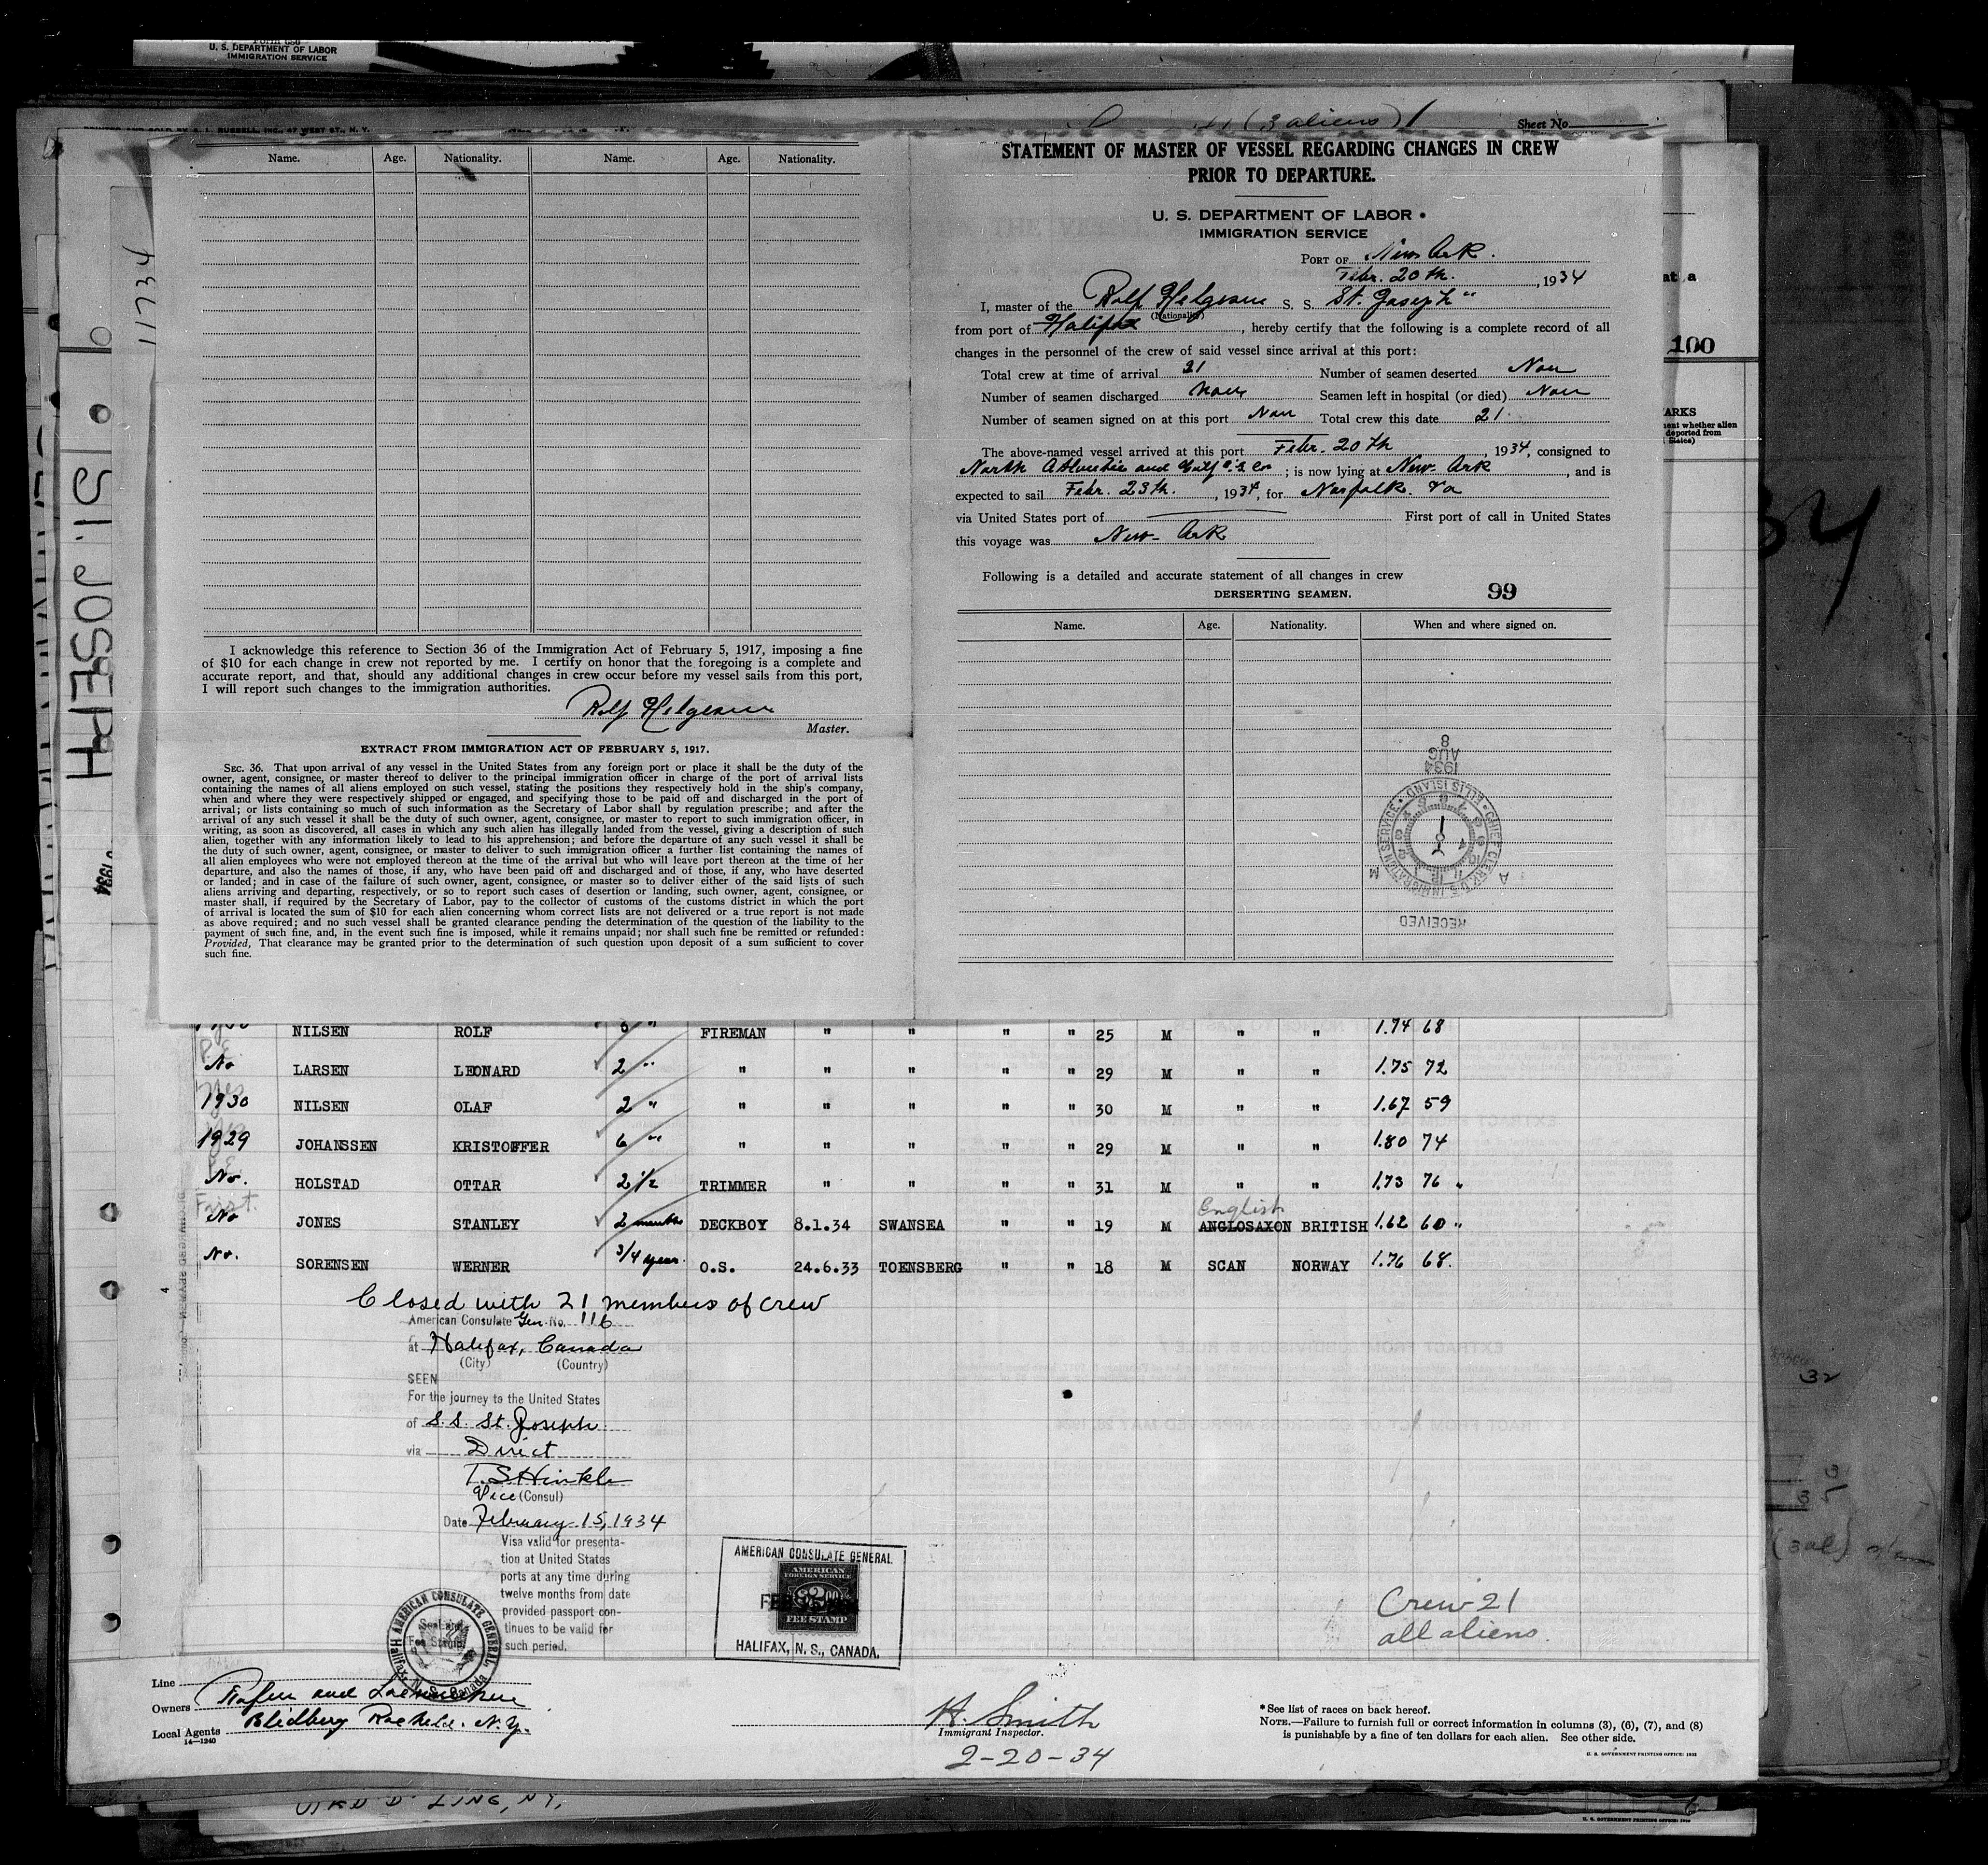 U. S. DEPARTMENT OF LABOR
IMMIGRATION SERVICE
(3 aliens) 1
Sheet No.
11371
ST. JOSEPH
Name. Age. Nationality. Name. Age. Nationality.
I acknowledge this reference to Section 36 of the Immigration Act of February 5, 1917, imposing a fine
of $10 for each change in crew not reported by me. I certify on honor that the foregoing is a complete and
accurate report, and that, should any additional changes in crew occur before my vessel sails from this port,
I will report such changes to the immigration authorities.
Rolf Helgesen
Master.
EXTRACT FROM IMMIGRATION ACT OF FEBRUARY 5, 1917.
SEC. 36. That upon arrival of any vessel in the United States from any foreign port or place it shall be the duty of the
owner, agent, consignee, or master thereof to deliver to the principal immigration officer in charge of the port of arrival lists
containing the names of all aliens employed on such vessel, stating the positions they respectively hold in the ship's company,
when and where they were respectively shipped or engaged, and specifying those to be paid off and discharged in the port of
arrival; or lists containing so much of such information as the Secretary of Labor shall by regulation prescribe; and after the
arrival of any such vessel it shall be the duty of such owner, agent, consignee, or master to report to such immigration officer, in
writing, as soon as discovered, all cases in which any such alien has illegally landed from the vessel, giving a description of such
alien, together with any information likely to lead to his apprehension; and before the departure of any such vessel it shall be
the duty of such owner, agent, consignee, or master to deliver to such immigration officer a further list containing the names of
all alien employees who were not employed thereon at the time of the arrival but who will leave port thereon at the time of her
departure, and also the names of those, if any, who have been paid off and discharged and of those, if any, who have deserted
or landed; and in case of the failure of such owner, agent, consignee, or master so to deliver either of the said lists of such
aliens arriving and departing, respectively, or so to report such cases of desertion or landing, such owner, agent, consignee, or
master shall, if required by the Secretary of Labor, pay to the collector of customs of the customs district in which the port
of arrival is located the sum of $10 for each alien concerning whom correct lists are not delivered or a true report is not made
as above required; and no such vessel shall be granted clearance pending the determination of the question of the liability to the
payment of such fine, and, in the event such fine is imposed, while it remains unpaid; nor shall such fine be remitted or refunded:
Provided, That clearance may be granted prior to the determination of such question upon deposit of a sum sufficient to cover
such fine.
STATEMENT OF MASTER OF VESSEL REGARDING CHANGES IN CREW
PRIOR TO DEPARTURE.
U. S. DEPARTMENT OF LABOR
IMMIGRATION SERVICE
PORT OF New Ark.
Febr. 20th. , 1934
I, master of the Rolf Helgesen S. S. St. Joseph"
(Nationality)
from port of Halifax , hereby certify that the following is a complete record of all
changes in the personnel of the crew of said vessel since arrival at this port:
Total crew at time of arrival 21 Number of seamen deserted Non
Number of seamen discharged Non Seamen left in hospital (or died) Non
Number of seamen signed on at this port Non Total crew this date 21
The above-named vessel arrived at this port Febr. 20th , 1934, consigned to
North Atlantic and Gulf ; is now lying at New-Ark , and is
expected to sail Febr. 23th. , 1934, for Norfolk. Va
via United States port of First port of call in United States
this voyage was New-Ark
Following is a detailed and accurate statement of all changes in crew
DERSERTING SEAMEN. 99
Name. Age. Nationality. When and where signed on.
RECEIVED
CHIEF CLERK U.S. IMMIGRATION SERVICE • ELLIS ISLAND
A M
1934
AUG
8
100
NILSEN ROLF 6 " FIREMAN " " " " 25 M " " 1.74 68
No LARSEN LEONARD 2 " " " " " " 29 M " " 1.75 72
1930 NILSEN OLAF 2 " " " " " " 30 M " " 1.67 59
1929 JOHANSSEN KRISTOFFER 6 " " " " " " 29 M " " 1.80 74
No. HOLSTAD OTTAR 2 1/2 TRIMMER " " " " 31 M " " 1.73 76
English
No JONES STANLEY 2 months DECKBOY 8.1.34 SWANSEA " " 19 M ANGLOSAXON BRITISH 1.62 60
No. SORENSEN WERNER 3/4 year. O.S. 24.6.33 TOENSBERG " " 18 M SCAN NORWAY 1.76 68.
Closed with 21 members of crew
American Consulate Gen. No. 116
at Halifax, Canada
(City) (Country)
SEEN
For the journey to the United States
of S.S. St. Joseph
via Direct
T. S Hinkle
Vice (Consul)
Date February 15, 1934
Visa valid for presenta-
tion at United States
ports at any time during
twelve months from date
provided passport con-
tinues to be valid for
such period.
AMERICAN CONSULATE GENERAL
Halifax, N. S. Canada
AMERICAN CONSULATE GENERAL
AMERICAN
FOREIGN SERVICE
$2.00
FEE STAMP
HALIFAX, N. S., CANADA.
Crew 21
all aliens.
Line
Owners
Local Agents N. Y.
14—1240
H. Smith
Immigrant Inspector.
2-20-34
* See list of races on back hereof.
NOTE.—Failure to furnish full or correct information in columns (3), (6), (7), and (8)
is punishable by a fine of ten dollars for each alien. See other side.